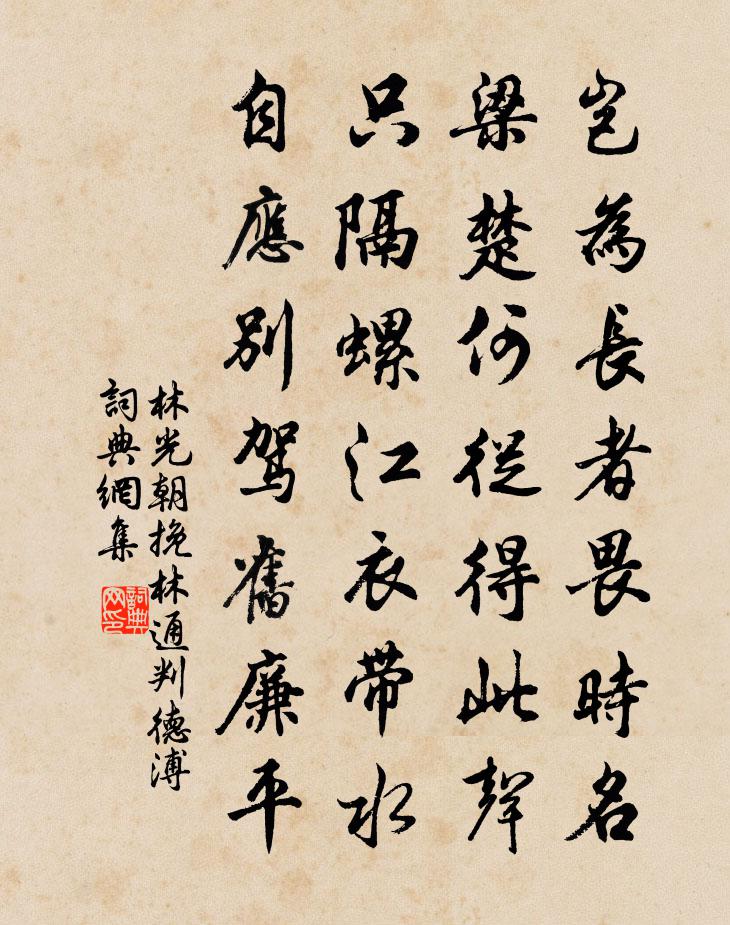 豈為長者畏時名
梁楚何從得此聲
只隔螺江衣帶水
自應別駕舊廉平
林光朝挽林通判德溥
詞典網集
詞典网印